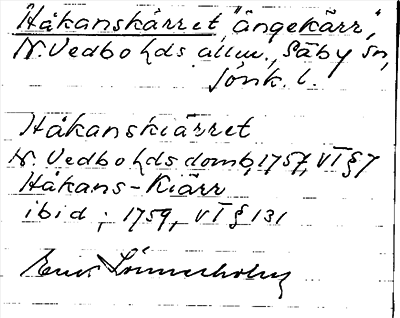 Håkanskärret, "ängekärr",
N. Vedbo hds allm., Säby sn,
Jönk. l.
Håkanskiärret
N. Vedbo hds domb, 1757, VI § 7
Håkans-Kiärr
ibid., 1759, VI § 131
Erik